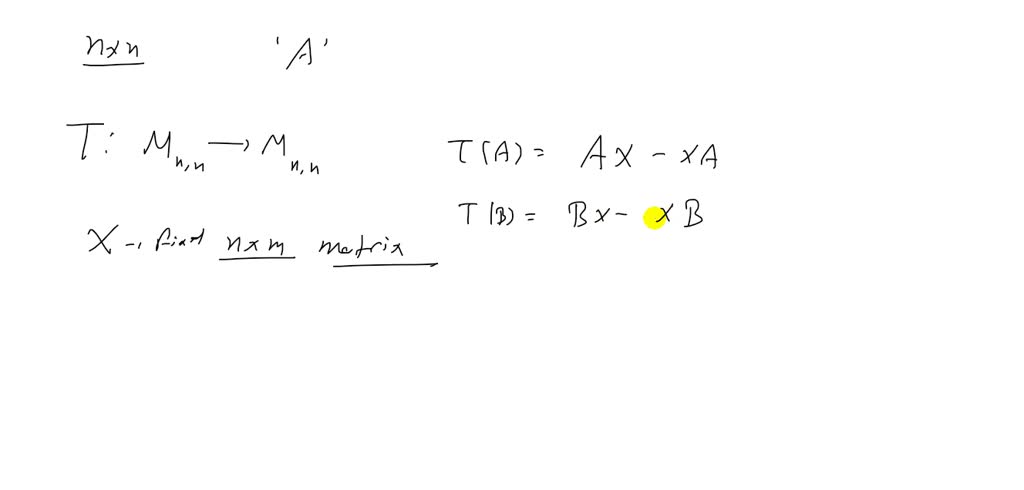 n×n 'A'
T: M n,n → M n,n
T(A) = AX - XA
T(B) = BX - XB
X → n×m matrix